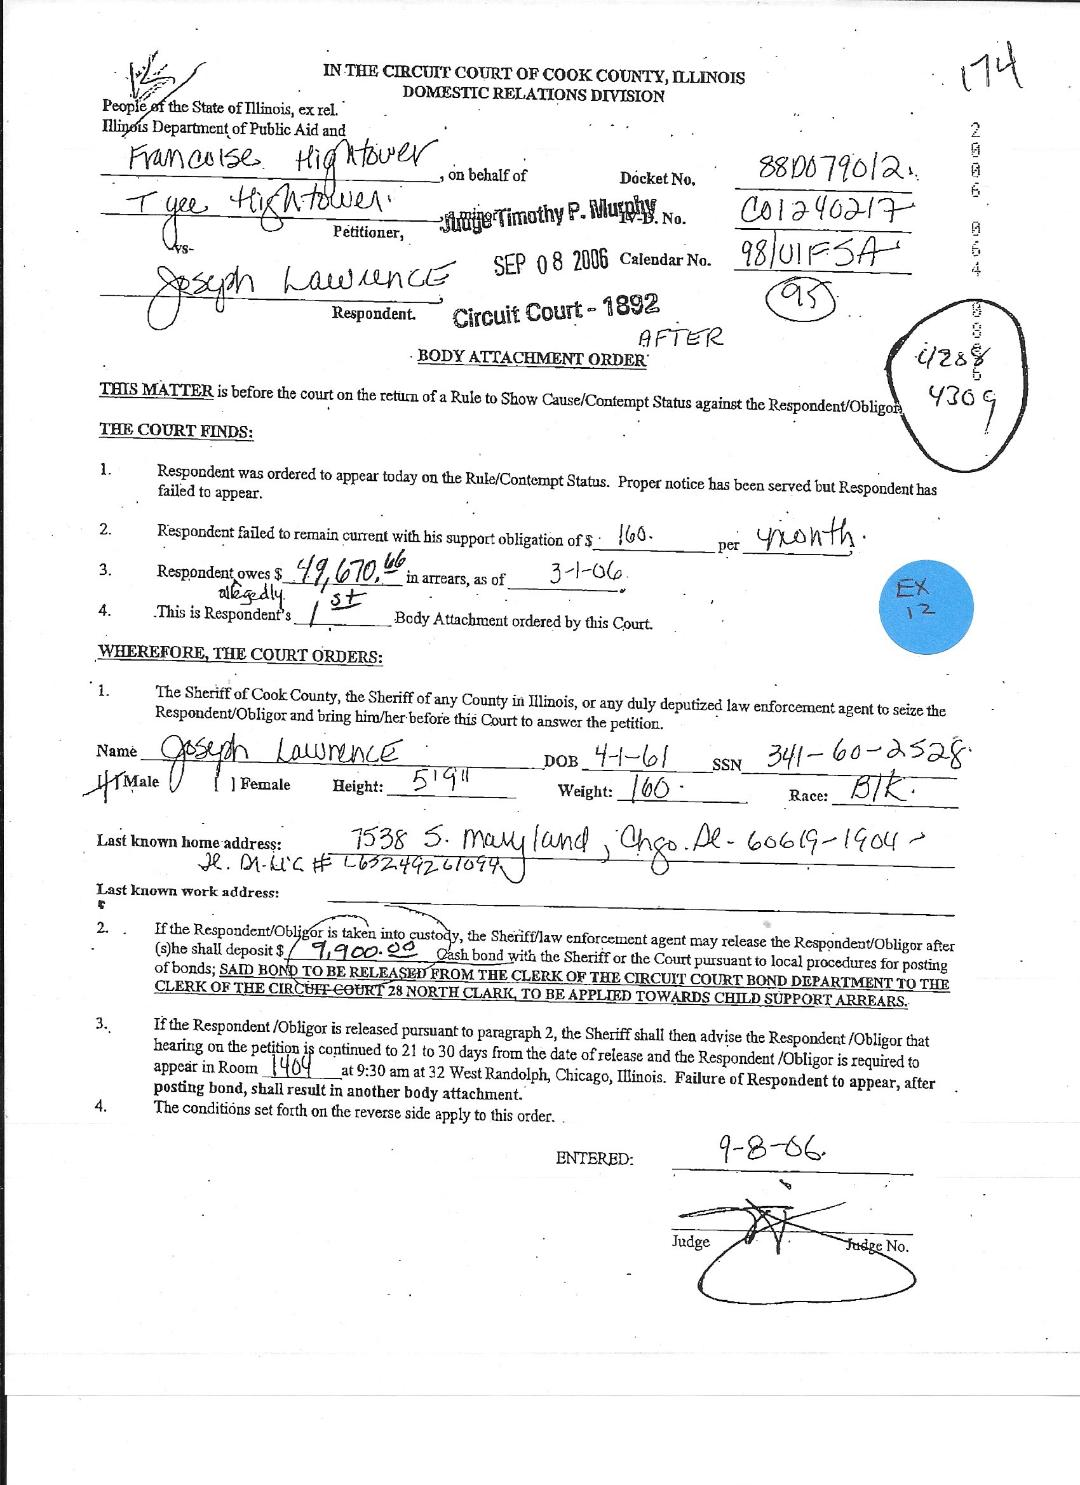 174
IN THE CIRCUIT COURT OF COOK COUNTY, ILLINOIS
DOMESTIC RELATIONS DIVISION
People of the State of Illinois, ex rel.
Illinois Department of Public Aid and
Francoise Hightower, on behalf of
Docket No. 88D079012
Tyee Hightower
Petitioner,
Judge Timothy P. Murphy
IV-D. No. C01240217
vs-
SEP 08 2006
Calendar No. 98/UIFSA
Joseph Lawrence,
Respondent.
Circuit Court - 1892
95
AFTER
BODY ATTACHMENT ORDER
4309
THIS MATTER is before the court on the return of a Rule to Show Cause/Contempt Status against the Respondent/Obligor
THE COURT FINDS:
1. Respondent was ordered to appear today on the Rule/Contempt Status. Proper notice has been served but Respondent has
failed to appear.
2. Respondent failed to remain current with his support obligation of $ 160. per month.
3. Respondent owes $ 49,670.66 in arrears, as of 3-1-06.
allegedly
4. This is Respondent's 1st Body Attachment ordered by this Court.
EX
12
WHEREFORE, THE COURT ORDERS:
1. The Sheriff of Cook County, the Sheriff of any County in Illinois, or any duly deputized law enforcement agent to seize the
Respondent/Obligor and bring him/her before this Court to answer the petition.
Name Joseph Lawrence DOB 4-1-61 SSN 341-60-2528
[ ] Male [ ] Female Height: 5'9" Weight: 160. Race: Blk.
Last known home address: 7538 S. Maryland, Chgo. Il- 60619-1904
Il. Dr. Lic # L65249261094
Last known work address:
2. If the Respondent/Obligor is taken into custody, the Sheriff/law enforcement agent may release the Respondent/Obligor after
(s)he shall deposit $ 9,900.00 Cash bond with the Sheriff or the Court pursuant to local procedures for posting
of bonds; SAID BOND TO BE RELEASED FROM THE CLERK OF THE CIRCUIT COURT BOND DEPARTMENT TO THE
CLERK OF THE CIRCUIT COURT 28 NORTH CLARK, TO BE APPLIED TOWARDS CHILD SUPPORT ARREARS.
3. If the Respondent /Obligor is released pursuant to paragraph 2, the Sheriff shall then advise the Respondent /Obligor that
hearing on the petition is continued to 21 to 30 days from the date of release and the Respondent /Obligor is required to
appear in Room 1404 at 9:30 am at 32 West Randolph, Chicago, Illinois. Failure of Respondent to appear, after
posting bond, shall result in another body attachment.
4. The conditions set forth on the reverse side apply to this order.
ENTERED: 9-8-06.
Judge Judge No.